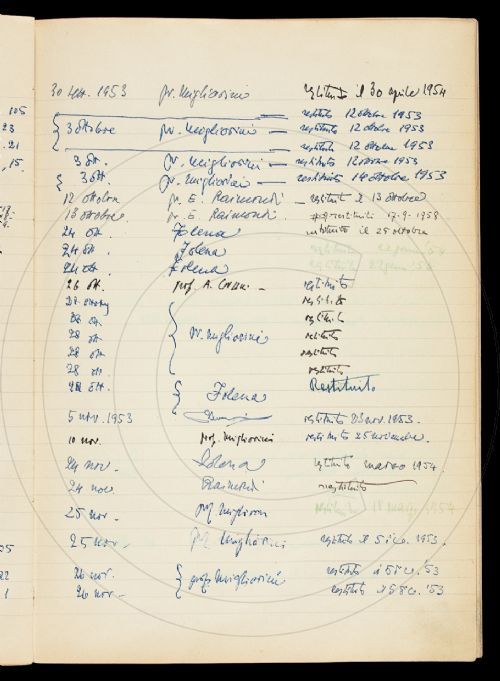 30 sett. 1953 pr. Migliorini restituito il 30 aprile 1954
105 restituito 12 ottobre 1953
23 3 ottobre pr. Migliorini restituito 12 ottobre 1953
21 restituito 12 ottobre 1953
15 3 ott. pr. Migliorini restituito 12 ottobre 1953
3 ott. pr. Migliorini restituito 14 ottobre 1953
12 ottobre pr. E. Raimondi restituito il 13 ottobre
13 ottobre pr. E. Raimondi restituiti 17-9-1958
24 ott. Folena restituito il 25 ottobre
24 ott. Folena
24 ott. Folena
26 ott. prof. A. restituito
28 ottobre restituito
28 ott. restituito
28 ott. pr. Migliorini restituito
28 ott. restituito
28 ott. restituito
28 ott. Folena Restituito
5 nov. 1953 restituito 23 nov. 1953.
10 nov. prof. Migliorini restituito 25 novembre.
24 nov. Folena restituito marzo 1954
24 nov. Raimondi restituito
25 nov. prof. Migliorini restituito 1954
25 nov. prof. Migliorini restituito il 5 dic. 1953.
26 nov. prof. Migliorini restituito il 5 dic. '53
26 nov. restituito il 5 dic. '53